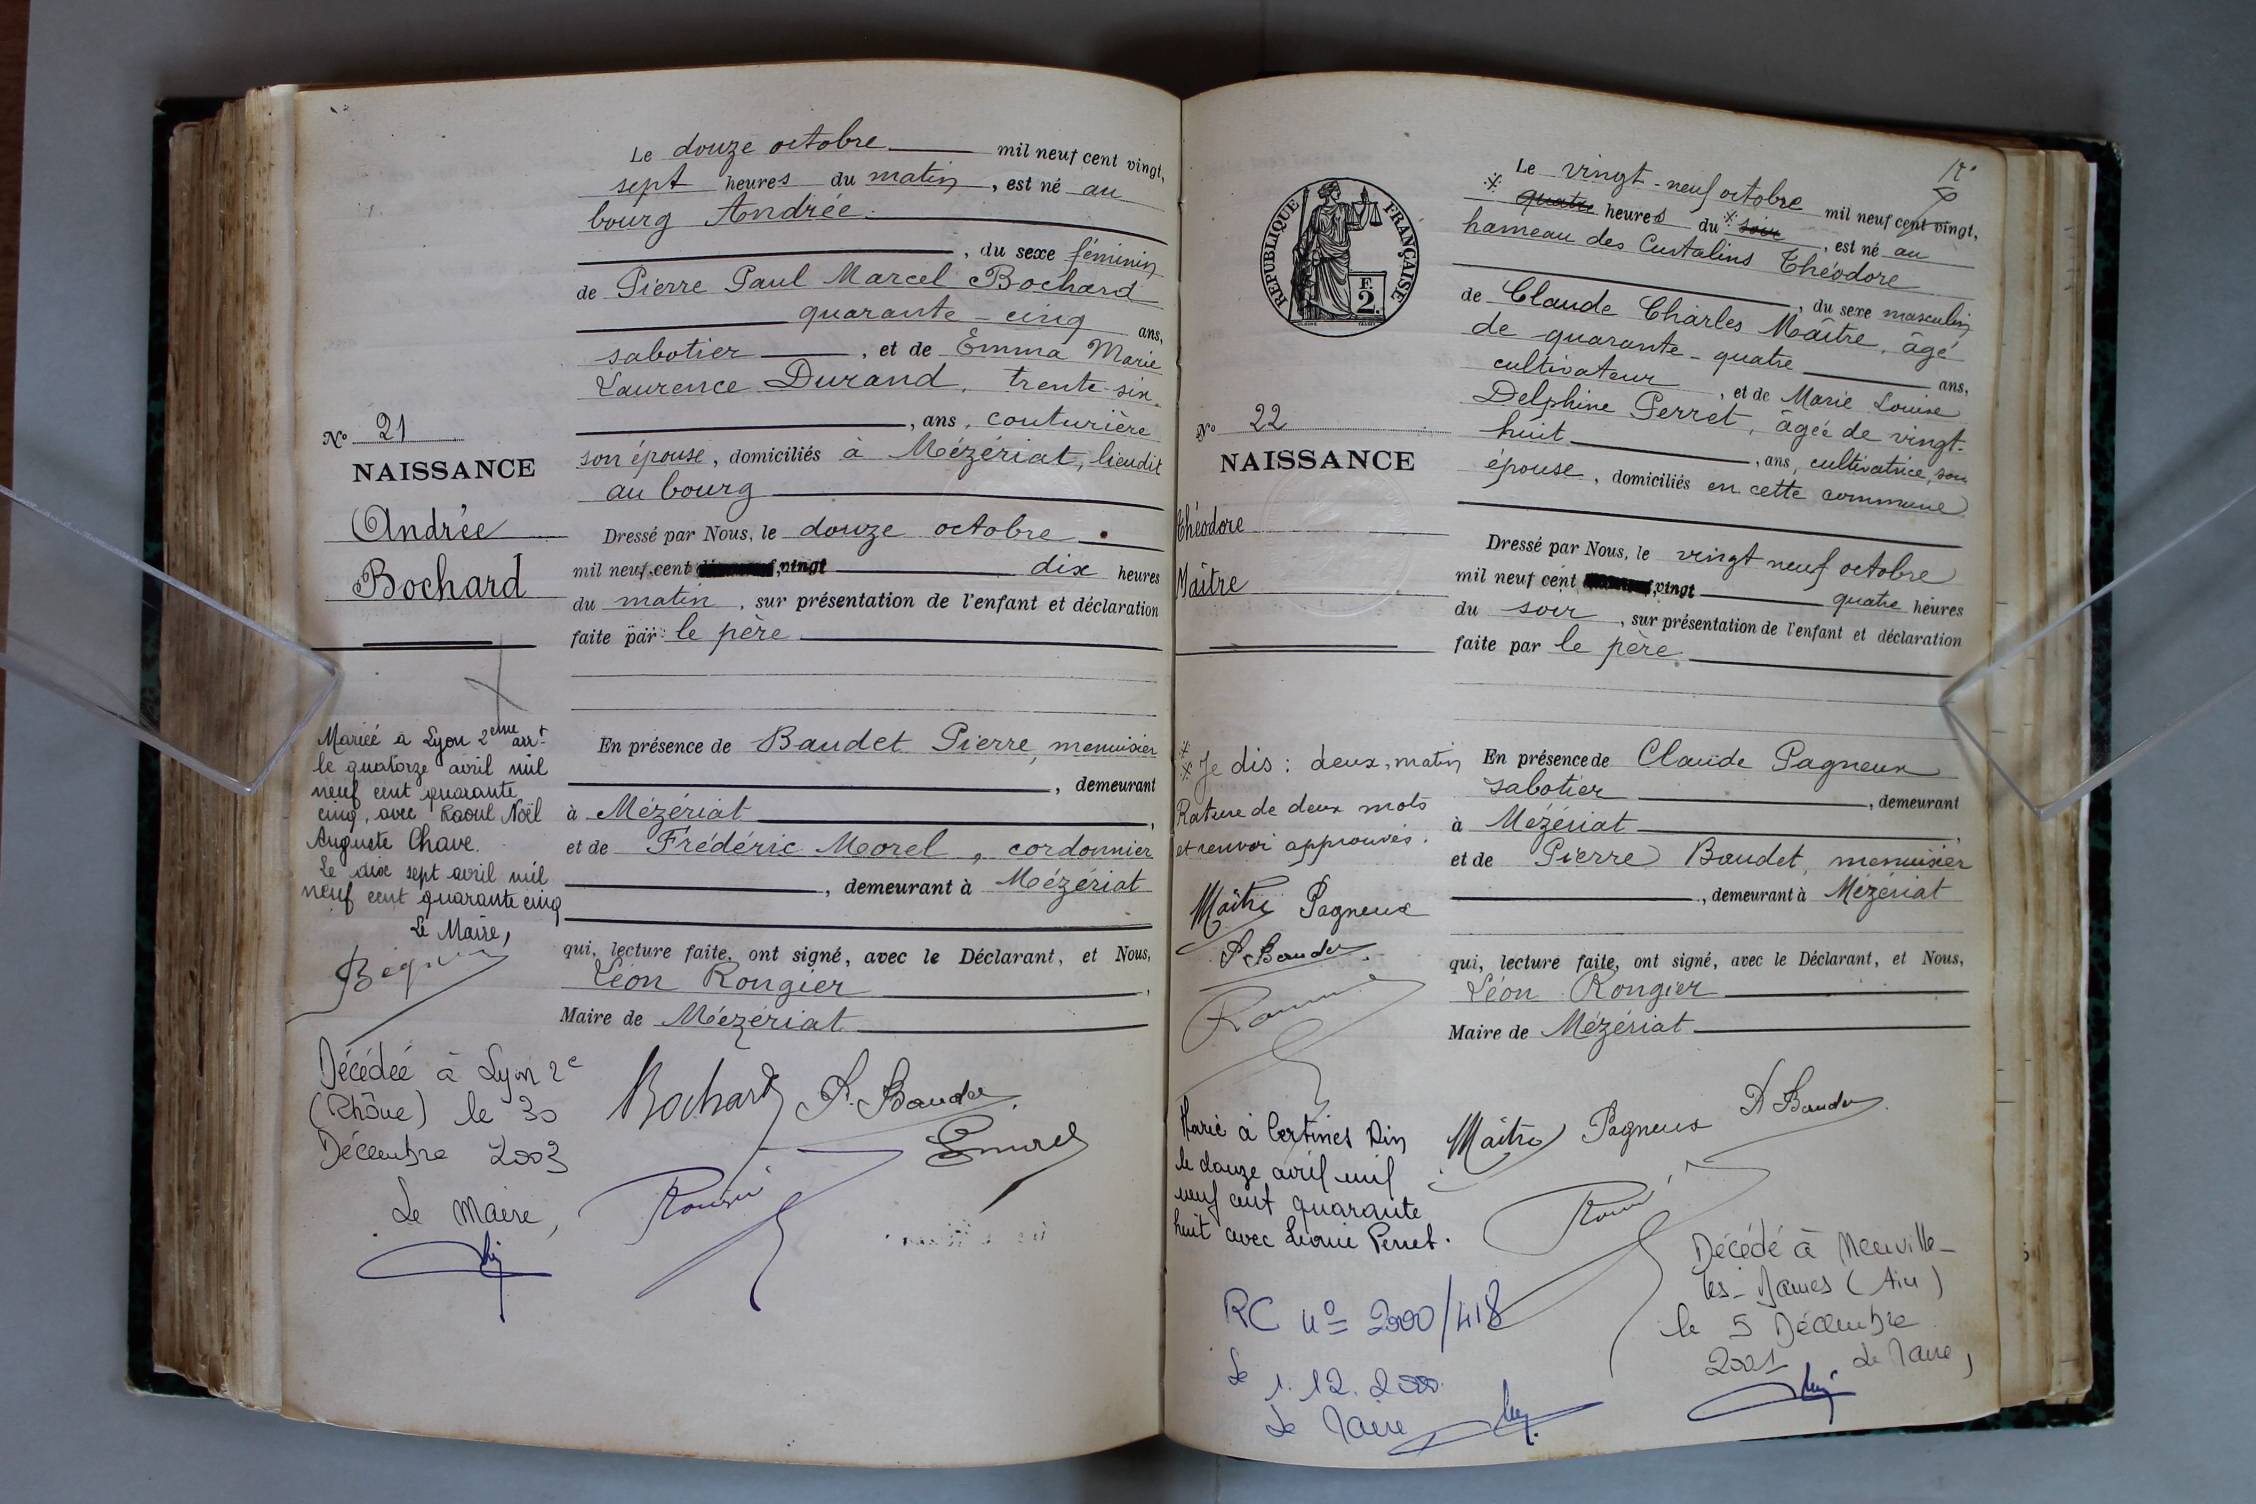 Le douze octobre mil neuf cent vingt,
sept heures du matin, est né au
bourg Andrée
, du sexe féminin
de Pierre Paul Marcel Bochard
quarante-cinq ans,
sabotier, et de Emma Marie
Laurence Durand, trente-six
, ans, couturière
son épouse, domiciliés à Mézériat, lieudit
au bourg
Dressé par Nous, le douze octobre
mil neuf cent vingt dix heures
du matin, sur présentation de l'enfant et déclaration
faite par le père
En présence de Baudet Pierre, menuisier
, demeurant
à Mézériat,
et de Frédéric Morel, cordonnier
, demeurant à Mézériat
qui, lecture faite, ont signé, avec le Déclarant, et Nous,
Léon Rongier,
Maire de Mézériat
Bochard P. Baudet
Morel
No 21
NAISSANCE
Andrée
Bochard
Mariée à Lyon 2eme arrt
le quatorze avril mil
neuf cent quarante
cinq, avec Raoul Noël
Auguste Chave.
Le dix sept avril mil
neuf cent quarante cinq
Le Maire,
Décédée à Lyon 2e
(Rhône) le 30
Décembre 2003
Le Maire,
RÉPUBLIQUE FRANÇAISE
2
Le vingt-neuf octobre mil neuf cent vingt,
quatre heures du soir, est né au
hameau des Custalins Théodore
, du sexe masculin
de Claude Charles Maître, âgé
de quarante-quatre ans,
cultivateur, et de Marie Louise
Delphine Perret, âgée de vingt-
huit, ans, cultivatrice, son
épouse, domiciliés en cette commune
Dressé par Nous, le vingt neuf octobre
mil neuf cent vingt quatre heures
du soir, sur présentation de l'enfant et déclaration
faite par le père
En présence de Claude Pagneux
sabotier, demeurant
à Mézériat,
et de Pierre Baudet, menuisier
, demeurant à Mézériat
qui, lecture faite, ont signé, avec le Déclarant, et Nous,
Léon Rongier
Maire de Mézériat
Maître Pagneux P. Baudet
Décédé à Neuville-
les-Dames (Ain)
le 5 Décembre
2001 Le Maire,
No 22
NAISSANCE
Théodore
Maître
Je dis: deux, matin
Rature de deux mots
et renvoi approuvés.
Maître Pagneux
P. Baudet
Marié à Certines Ain
le douze avril mil
neuf cent quarante
huit avec Léonie Perret.
RC n° 2000/418
Le 1.12.2000
Le Maire